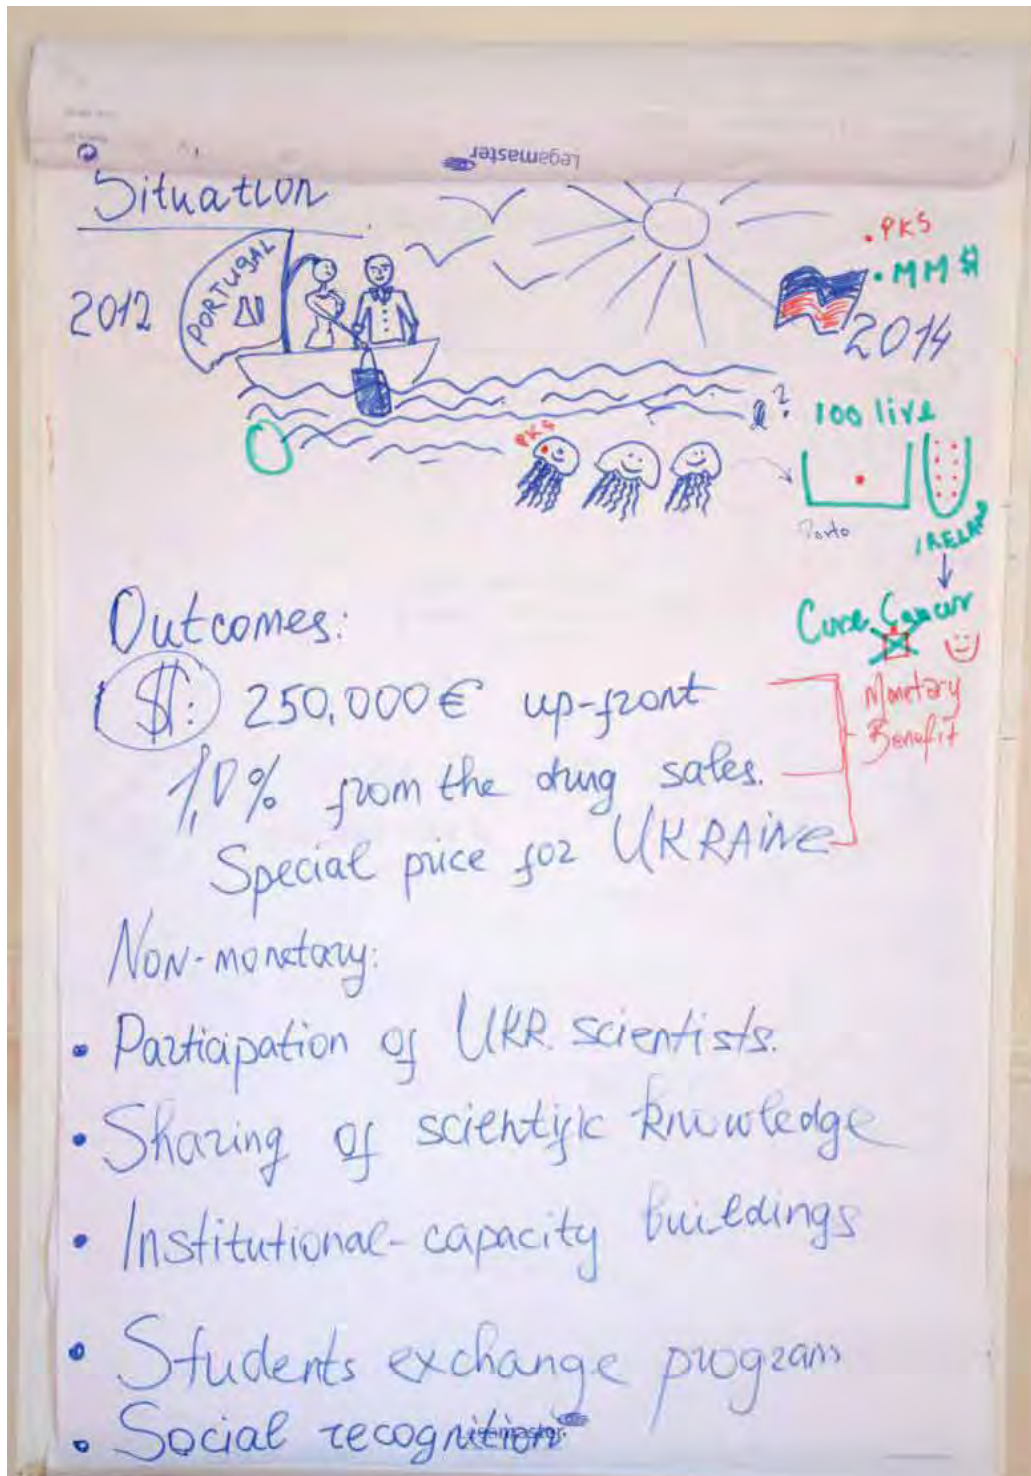 Legamaster
Situation
2012
PORTUGAL
• PKS
• MM $
2014
PKS
?
100 live
Porto
IRELAND
Cure Cancer
Outcomes:
$: 250,000€ up-front
1,0% from the drug sales.
Special price for UKRAINE
Monetary
Benefit
Non-monetary:
• Participation of UKR. scientists.
• Sharing of scientific knowledge
• Institutional-capacity buildings
• Students exchange program
• Social recognition
Legamaster